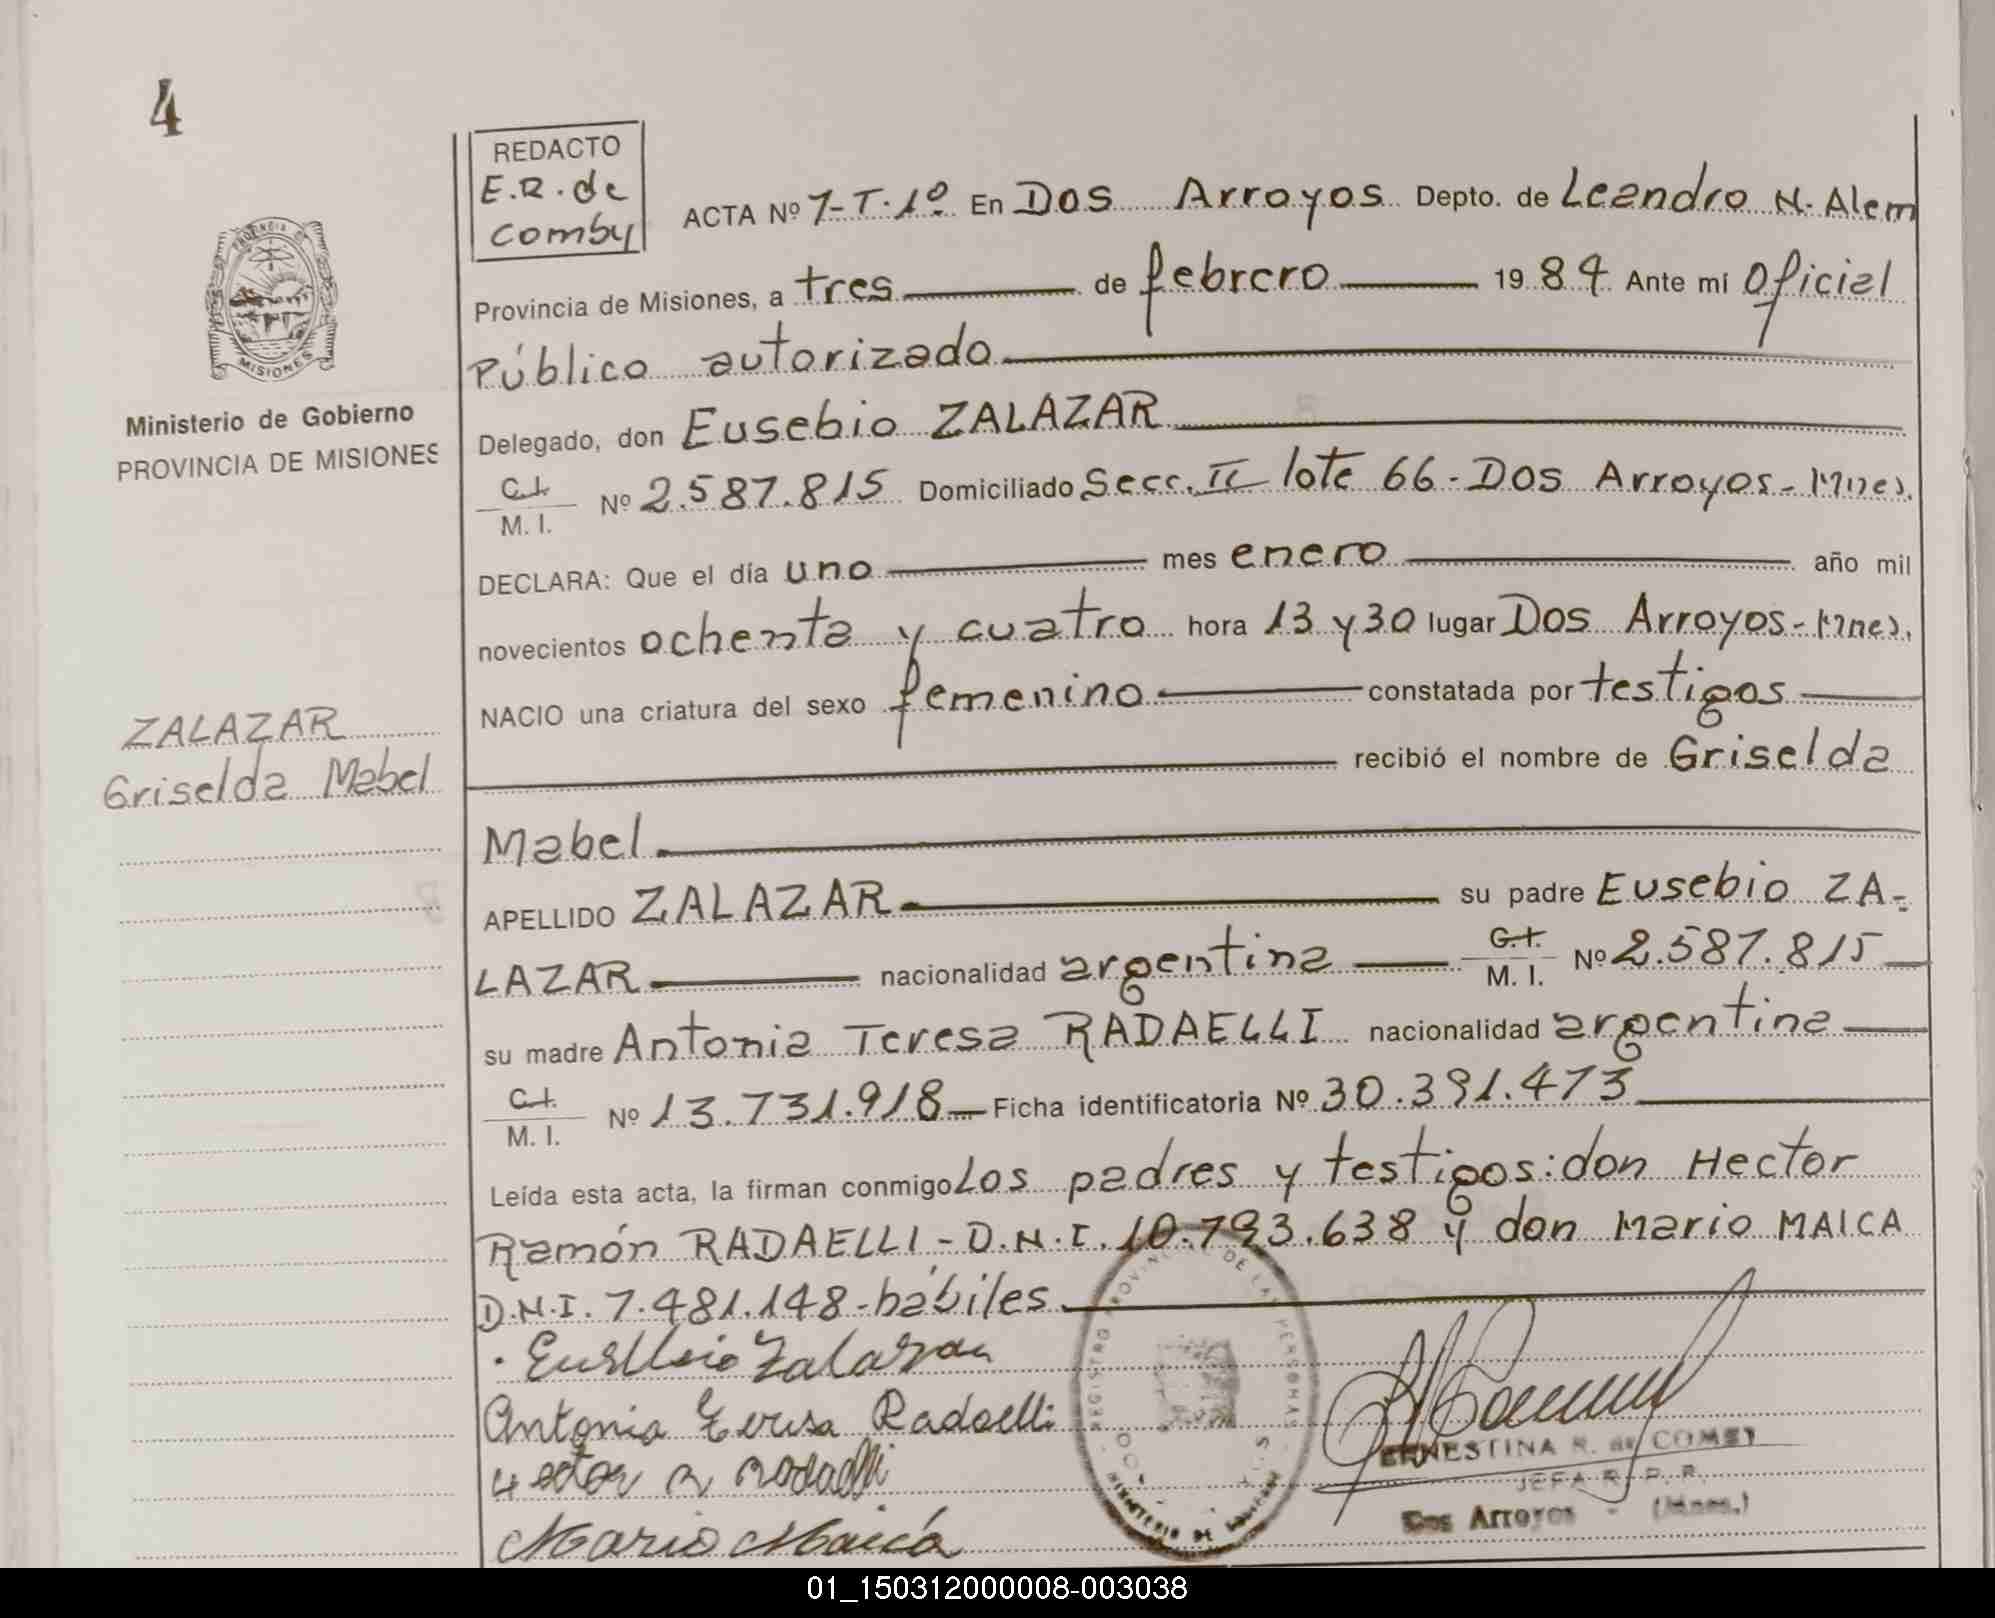 4
REDACTO
E.R. de
comby
ACTA Nº 7-T.1º. En Dos Arroyos Depto. de Leandro N. Alem
Provincia de Misiones, a tres de febrero 1984 Ante mí Oficial
Público autorizado
PROVINCIA DE
MISIONES
Ministerio de Gobierno
PROVINCIA DE MISIONES
Delegado, don Eusebio ZALAZAR
C.I.
M. I. Nº 2.587.815 Domiciliado Secc. II lote 66-Dos Arroyos-Mnes.
DECLARA: Que el día uno mes enero año mil
novecientos ochenta y cuatro hora 13 y 30 lugar Dos Arroyos-Mnes.
NACIO una criatura del sexo femenino constatada por testigos
recibió el nombre de Griselda
ZALAZAR
Griselda Mabel
Mabel
APELLIDO ZALAZAR su padre Eusebio ZA-
LAZAR nacionalidad argentina C.I.
M. I. Nº 2.587.815
su madre Antonia Teresa RADAELLI nacionalidad argentina
C.I.
M. I. Nº 13.731.918 Ficha identificatoria Nº 30.391.473
Leída esta acta, la firman conmigo Los padres y testigos: don Hector
Ramón RADAELLI-D.N.I. 10.793.638 y don Mario MAICA
D.N.I. 7.481.148-hábiles
Eusebio Zalazar
Antonia Teresa Radaelli
Hector R Radaelli
Mario Maicá
REGISTRO PROVINCIAL DE LAS PERSONAS
MINISTERIO DE GOBIERNO
ERNESTINA R. de COMBY
JEFA R. P. P.
Dos Arroyos - (Mnes.)
01_150312000008-003038